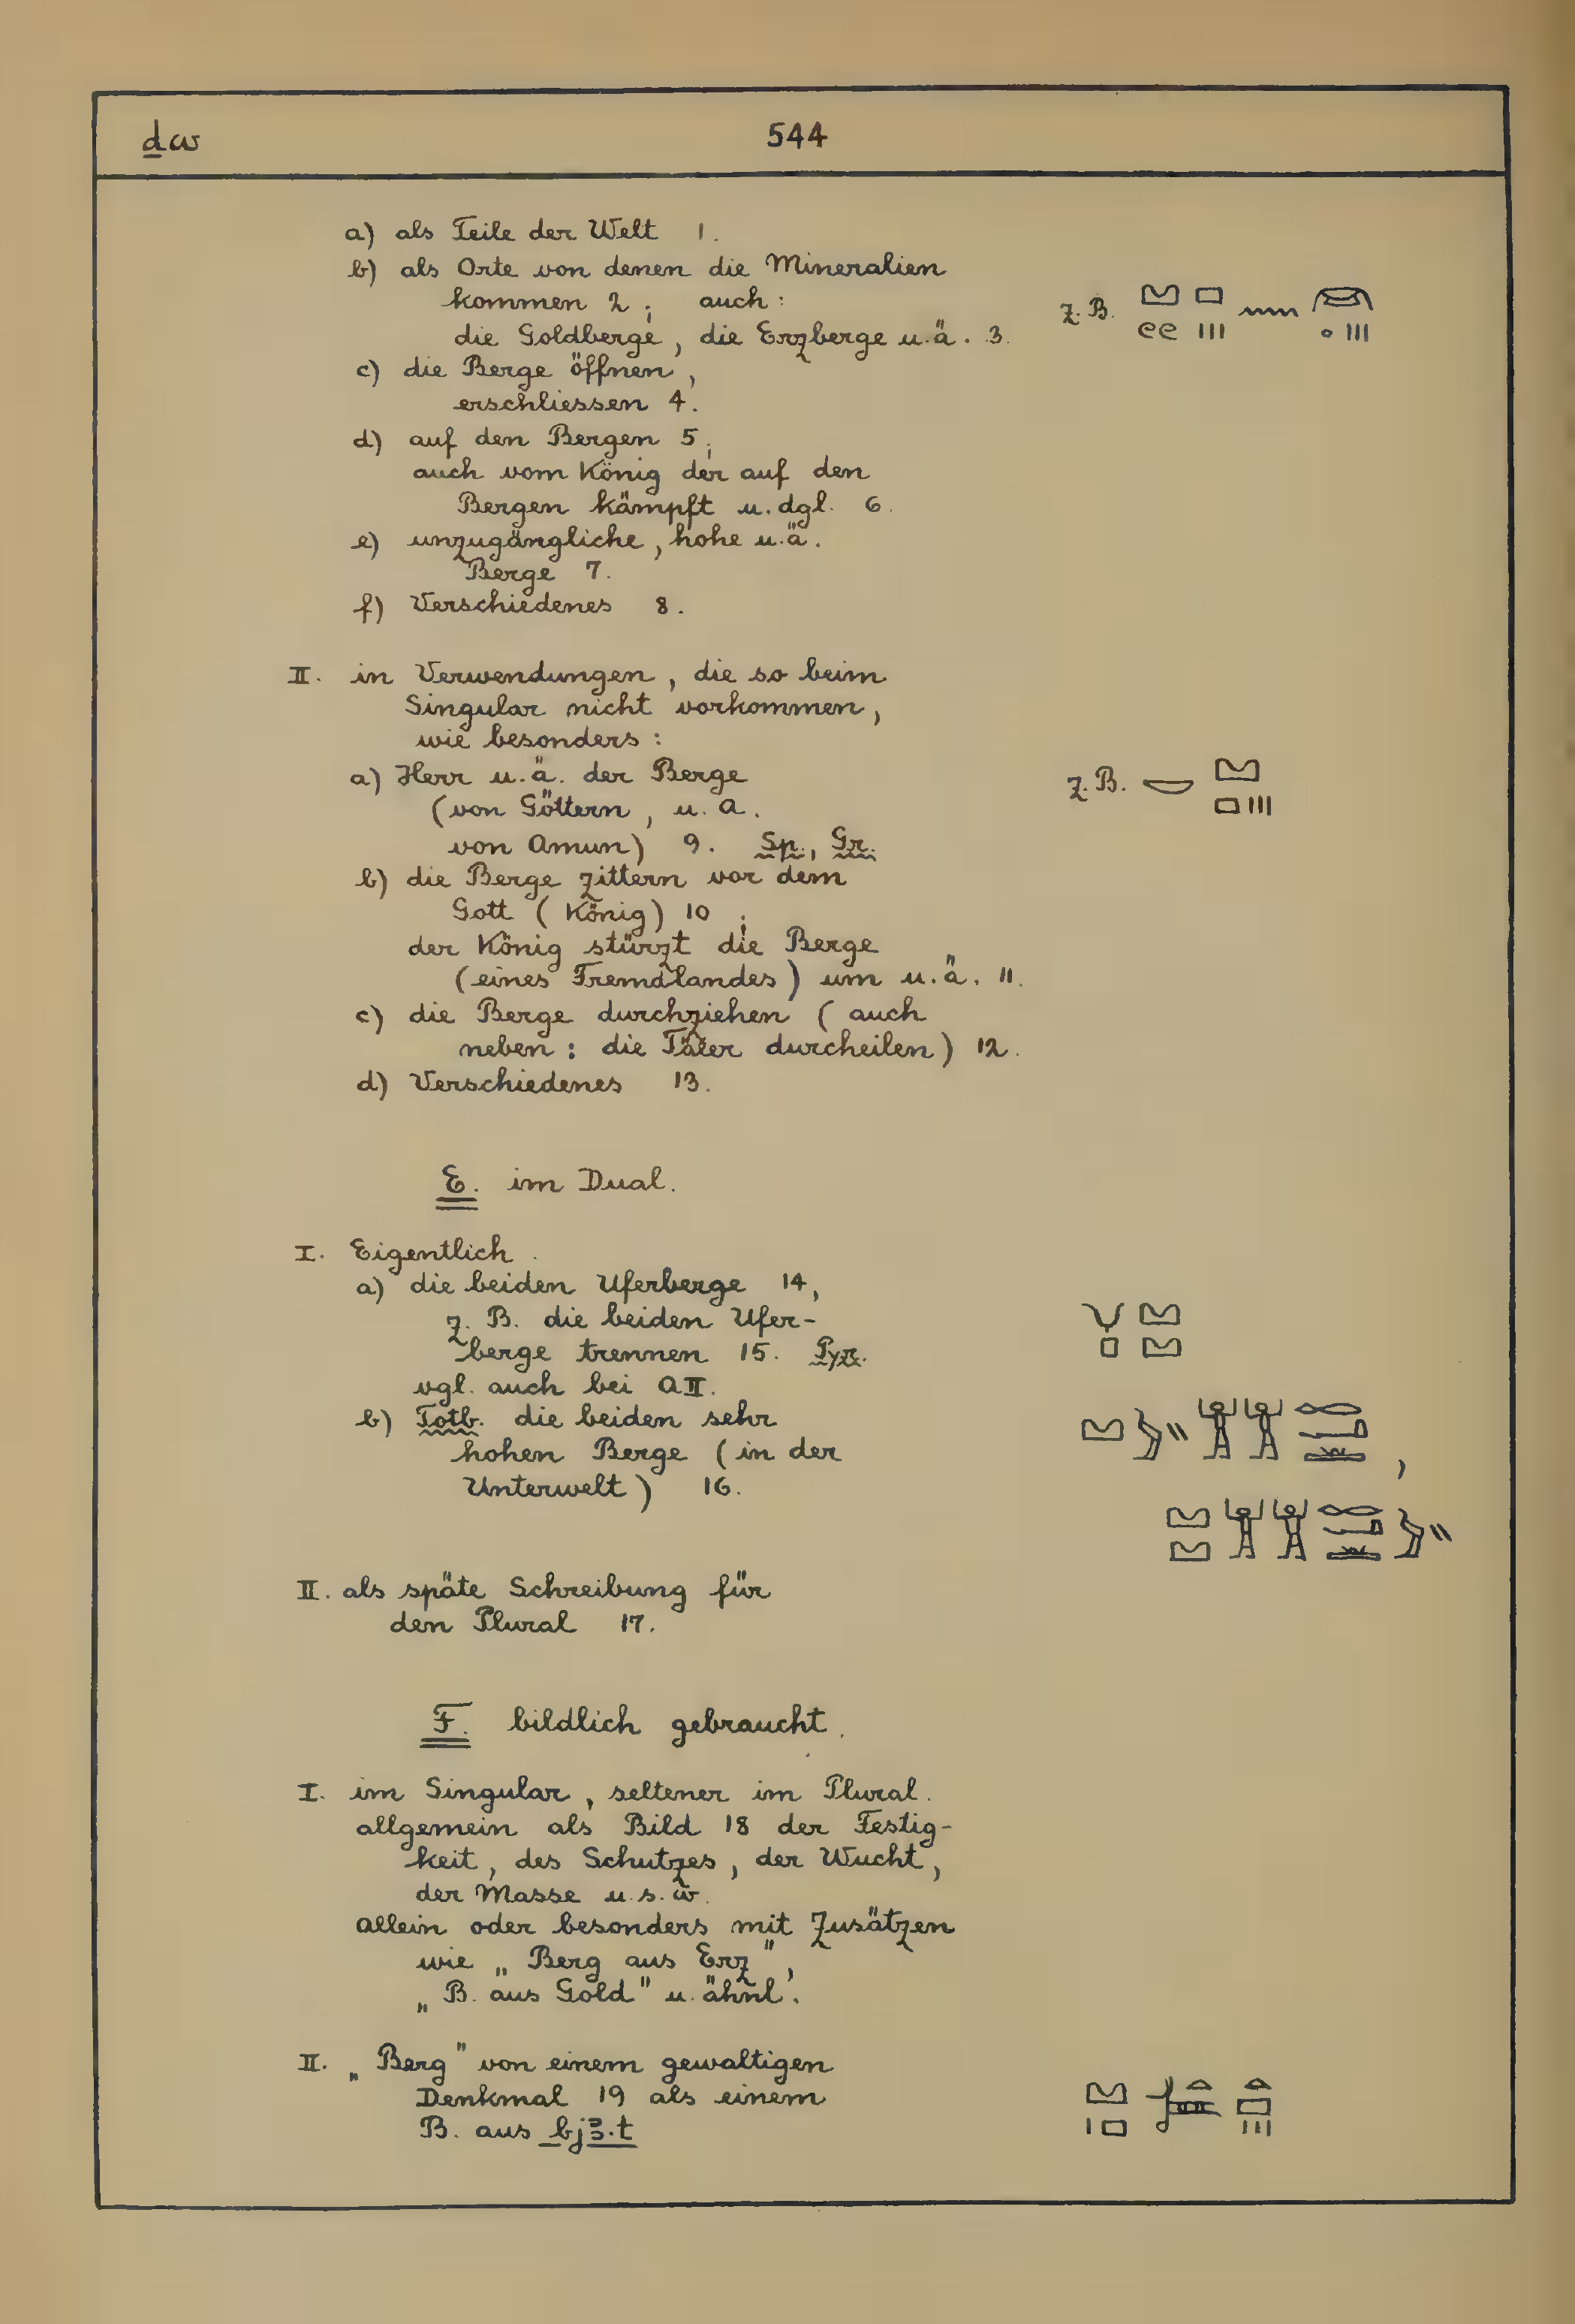 ḏw 544
a) als Teile der Welt 1.
b) als Orte von denen die Mineralien
kommen 2; auch:
die Goldberge, die Erzberge u.ä. 3. z.B.
c) die Berge öffnen,
erschliessen 4.
d) auf den Bergen 5;
auch vom König der auf den
Bergen kämpft u. dgl. 6.
e) unzugängliche, hohe u.ä.
Berge 7.
f) Verschiedenes 8.
II. in Verwendungen, die so beim
Singular nicht vorkommen,
wie besonders:
a) Herr u.ä. der Berge z.B.
(von Göttern, u. a.
von Amun) 9. Sp., Gr.
b) die Berge zittern vor dem
Gott (König) 10;
der König stürzt die Berge
(eines Fremdlandes) um u.ä. 11.
c) die Berge durchziehen (auch
neben: die Täler durcheilen) 12.
d) Verschiedenes 13.
E. im Dual.
I. Eigentlich.
a) die beiden Uferberge 14,
z. B. die beiden Ufer-
berge trennen 15. Pyr.
vgl. auch bei A II.
b) Totb. die beiden sehr
hohen Berge (in der
Unterwelt) 16.
II. als späte Schreibung für
den Plural 17.
F. bildlich gebraucht.
I. im Singular, seltener im Plural.
allgemein als Bild 18 der Festig-
keit, des Schutzes, der Wucht,
der Masse u.s.w.
allein oder besonders mit Zusätzen
wie „Berg aus Erz",
„B. aus Gold" u. ähnl.
II. „Berg" von einem gewaltigen
Denkmal 19 als einem
B. aus bjꜣ.t